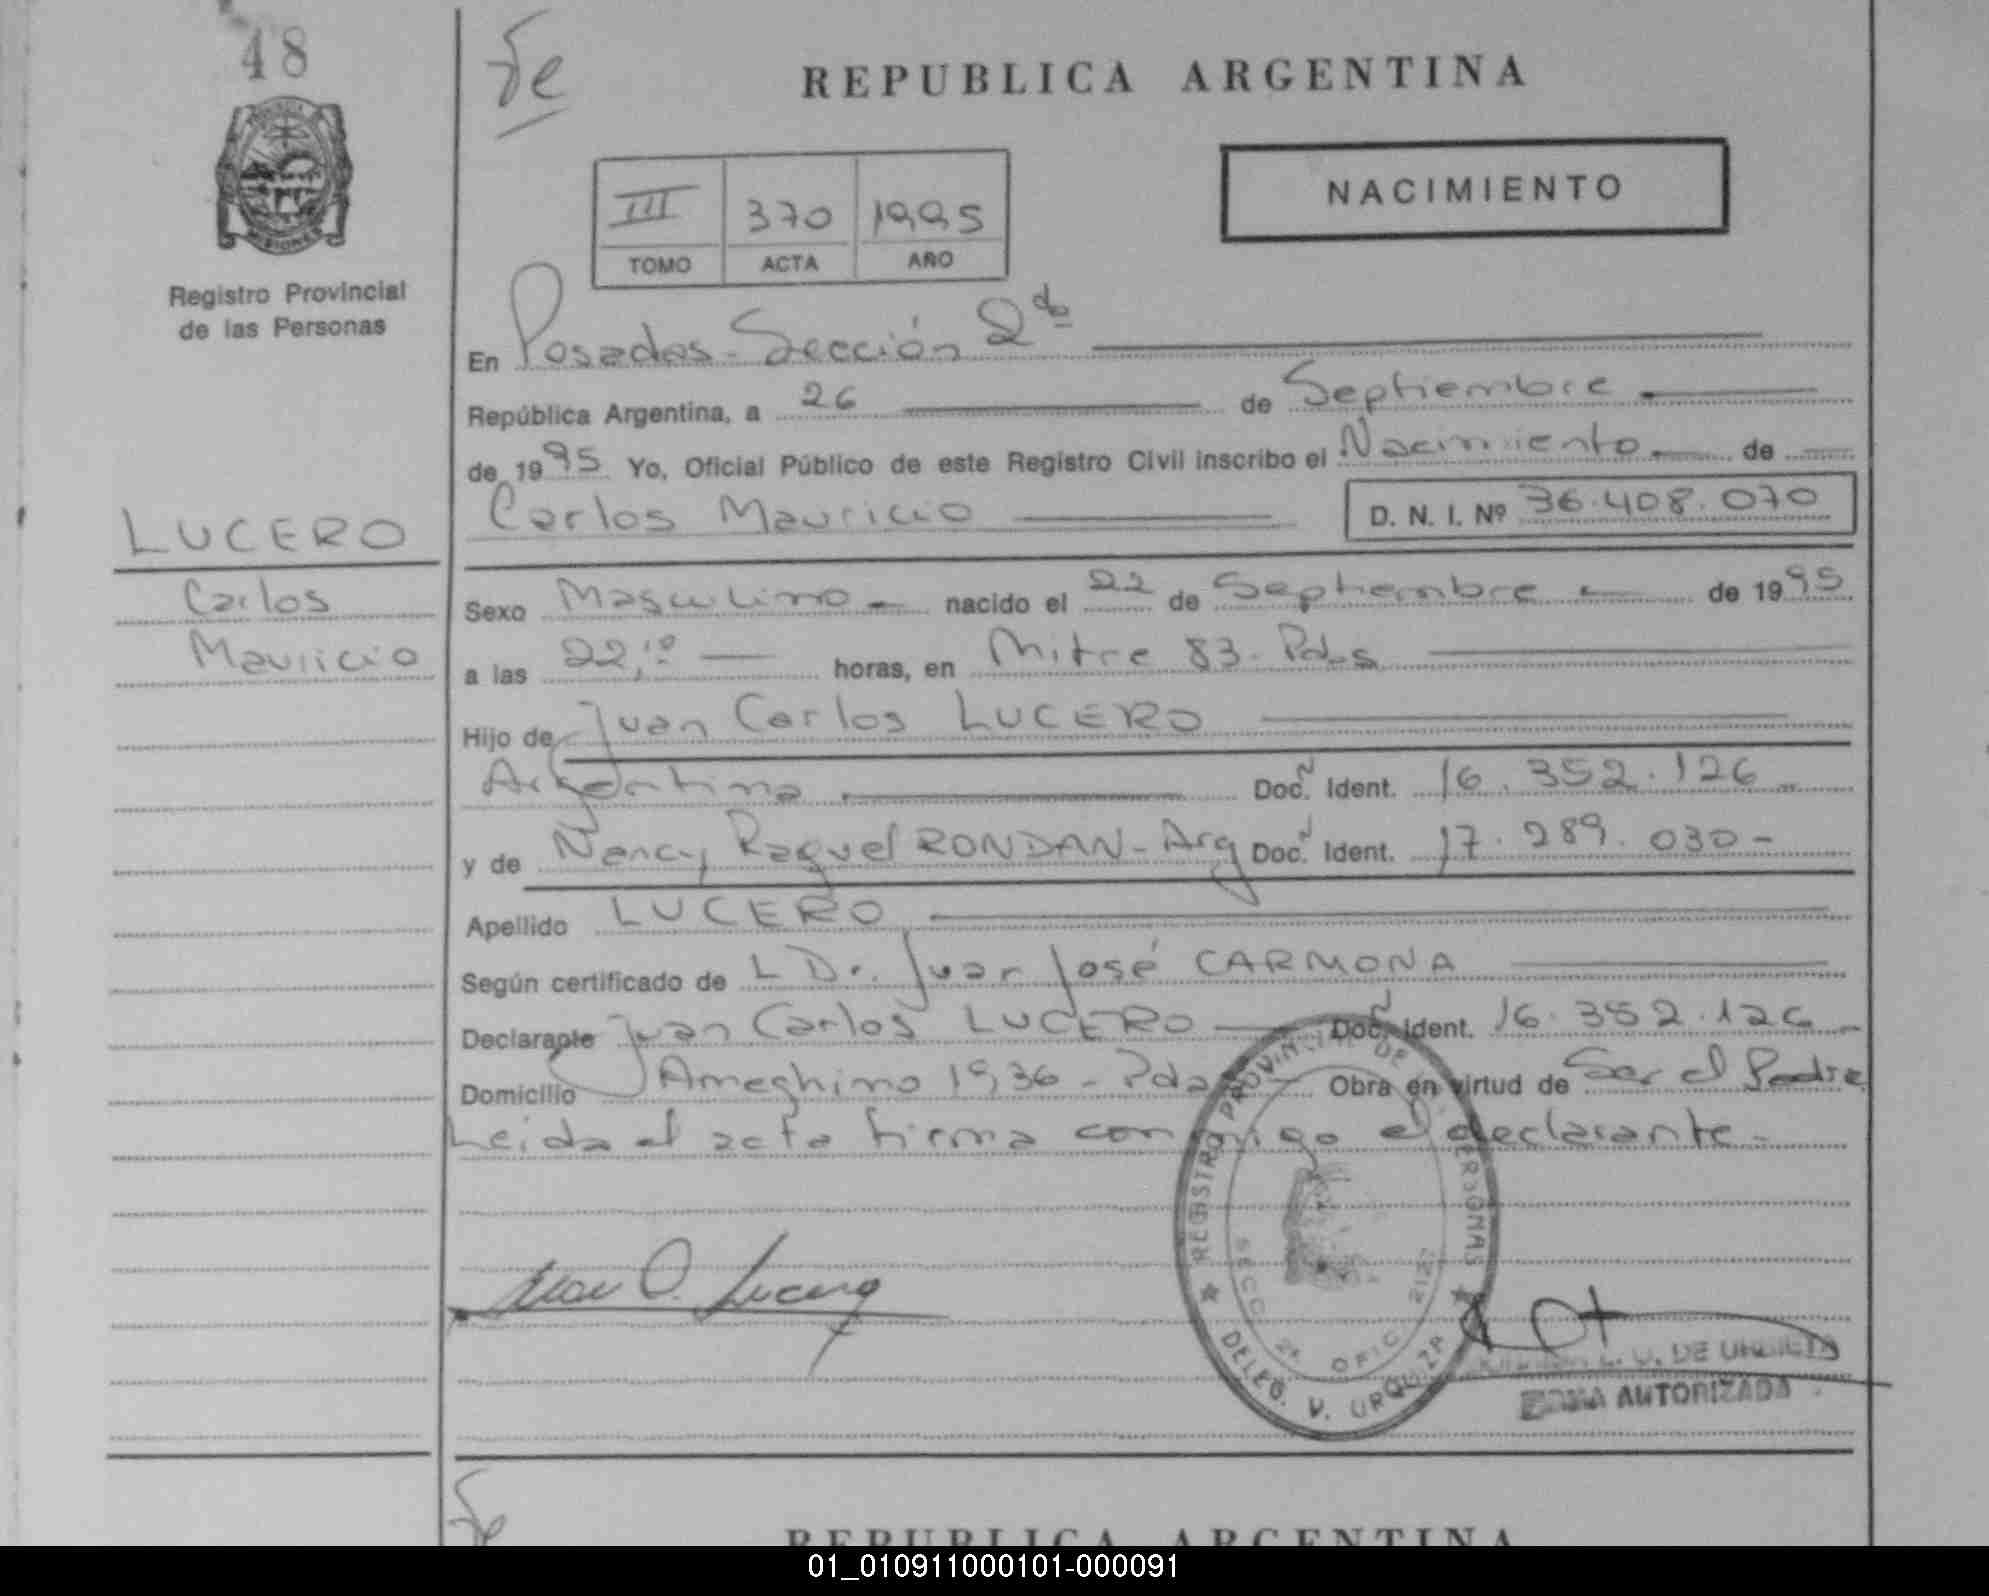 48
Fe
REPUBLICA ARGENTINA
PROVINCIA
MISIONES
Registro Provincial
de las Personas
NACIMIENTO
III 370 1995
TOMO ACTA AÑO
En Posadas - Sección 2da
República Argentina, a 26 de Septiembre
de 1995 Yo, Oficial Público de este Registro Civil inscribo el Nacimiento de
Carlos Mauricio D. N. I. Nº 36.408.070
LUCERO
Carlos
Mauricio
Sexo Masculino - nacido el 22 de Septiembre - de 1995
a las 22,10 horas, en Mitre 83 - Pdas
Hijo de Juan Carlos LUCERO
Argentina Doc. Ident. 16.352.126
y de Nancy Raquel RONDAN - Arg Doc. Ident. 17.289.030 -
Apellido LUCERO
Según certificado de L Dr. Juan José CARMONA
Declarante Juan Carlos LUCERO Doc. Ident. 16.352.126
Domicilio Ameghino 1936 - Pdas Obra en virtud de Ser el Padre
Leida el acta firma conmigo el declarante -
REGISTRO PROVINCIAL DE PERSONAS
SECC. 2ª OFIC. 2121
DELEG. V. URQUIZA
Juan C. Lucero
L. U. DE URBIETA
FIRMA AUTORIZADA
Fe
REPUBLICA ARGENTINA
01_010911000101-000091